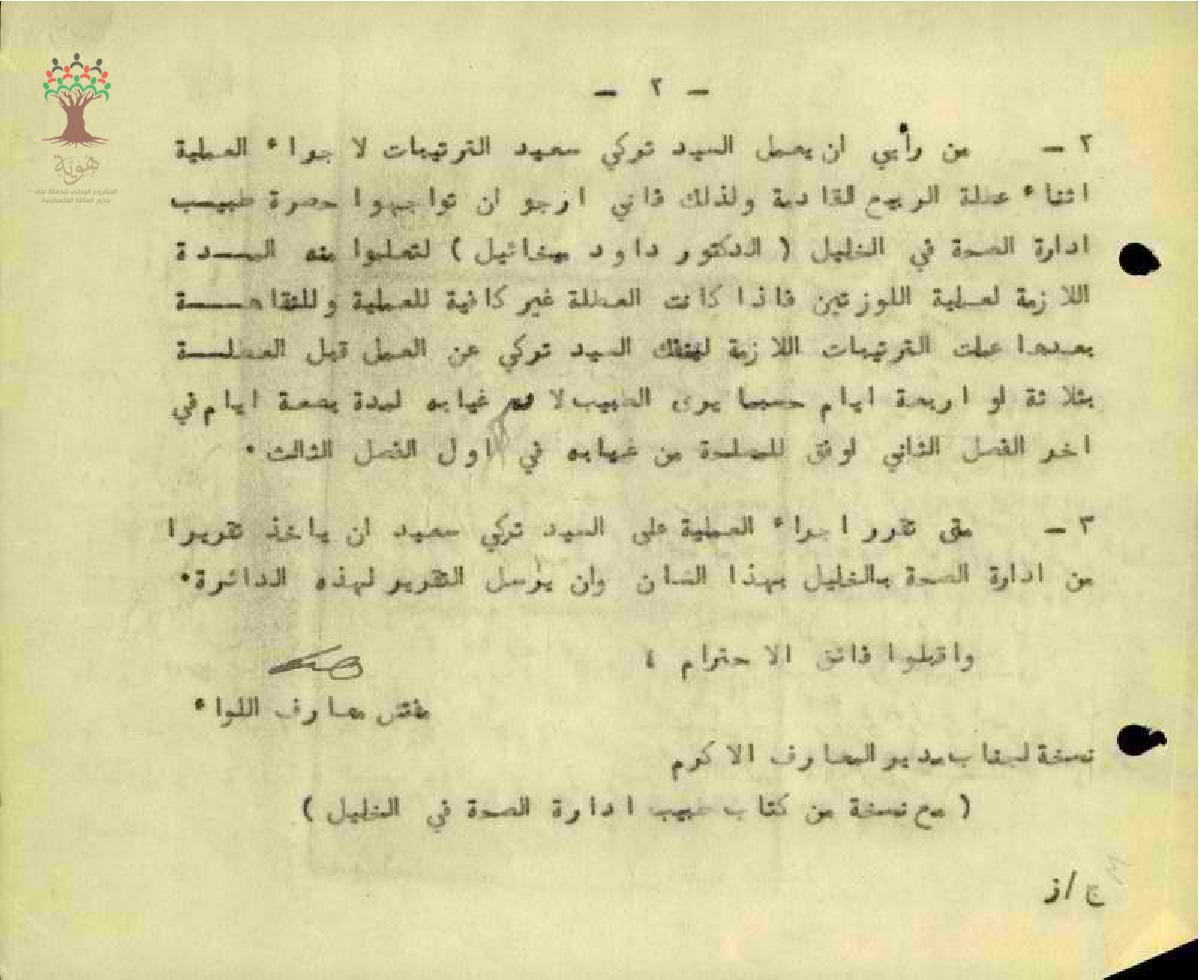 هوية
المشروع الوطني للحفاظ على
جذور العائلة الفلسطينية
- ٢ -
٢ - من رأيي ان يعمل السيد تركي سعيد الترتيبات لا جراء العملية
اثناء عطلة الربيع القادمة ولذلك فاني ارجو ان تواجهوا حضرة طبيب
ادارة الصحة في الخليل ( الدكتور داود ميخائيل ) لتعلموا منه المدة
اللازمة لعملية اللوزتين فاذا كانت العطلة غير كافية للعملية وللنقاهة
بعدها عملت الترتيبات اللازمة السيد تركي عن العمل قبل العطلة
بثلاثة او اربعة ايام حسبما يرى الطبيب لا غيابه لمدة بضعة ايام في
اخر الفصل الثاني اوفق للمصلحة من غيابه في اول الفصل الثالث.
٣ - متى تقرر اجراء العملية على السيد تركي سعيد ان ياخذ تقريرا
من ادارة الصحة بالخليل بهذا الشان وان يرسل التقرير لهذه الدائرة.
واقبلوا فائق الاحترام ،
مفتش معارف اللواء
نسخة لجناب مدير المعارف الاكرم
( مع نسخة من كتاب طبيب ادارة الصحة في الخليل )
ج / ز